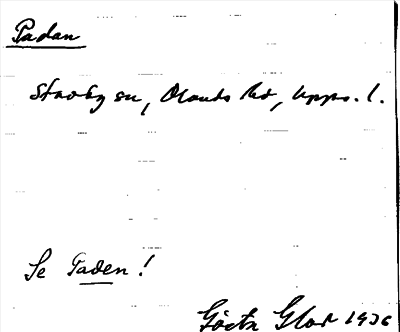 Padan
Stavby sn, Olands hd, Upps. l.
Se Taden!
Gösta Glor 1936